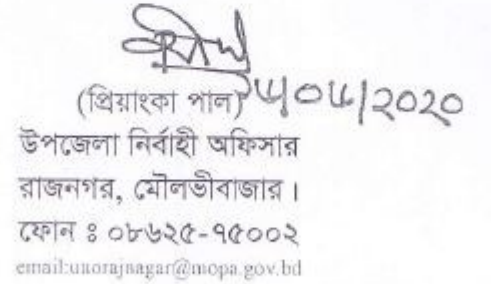 (প্রিয়াংকা পাল)
উপজেলা নির্বাহী অফিসার
রাজনগর, মৌলভীবাজার ।
ফোন ঃ ০৮৬২৫-৭৫০০২
email:unorajnagar@mopa.gov.bd